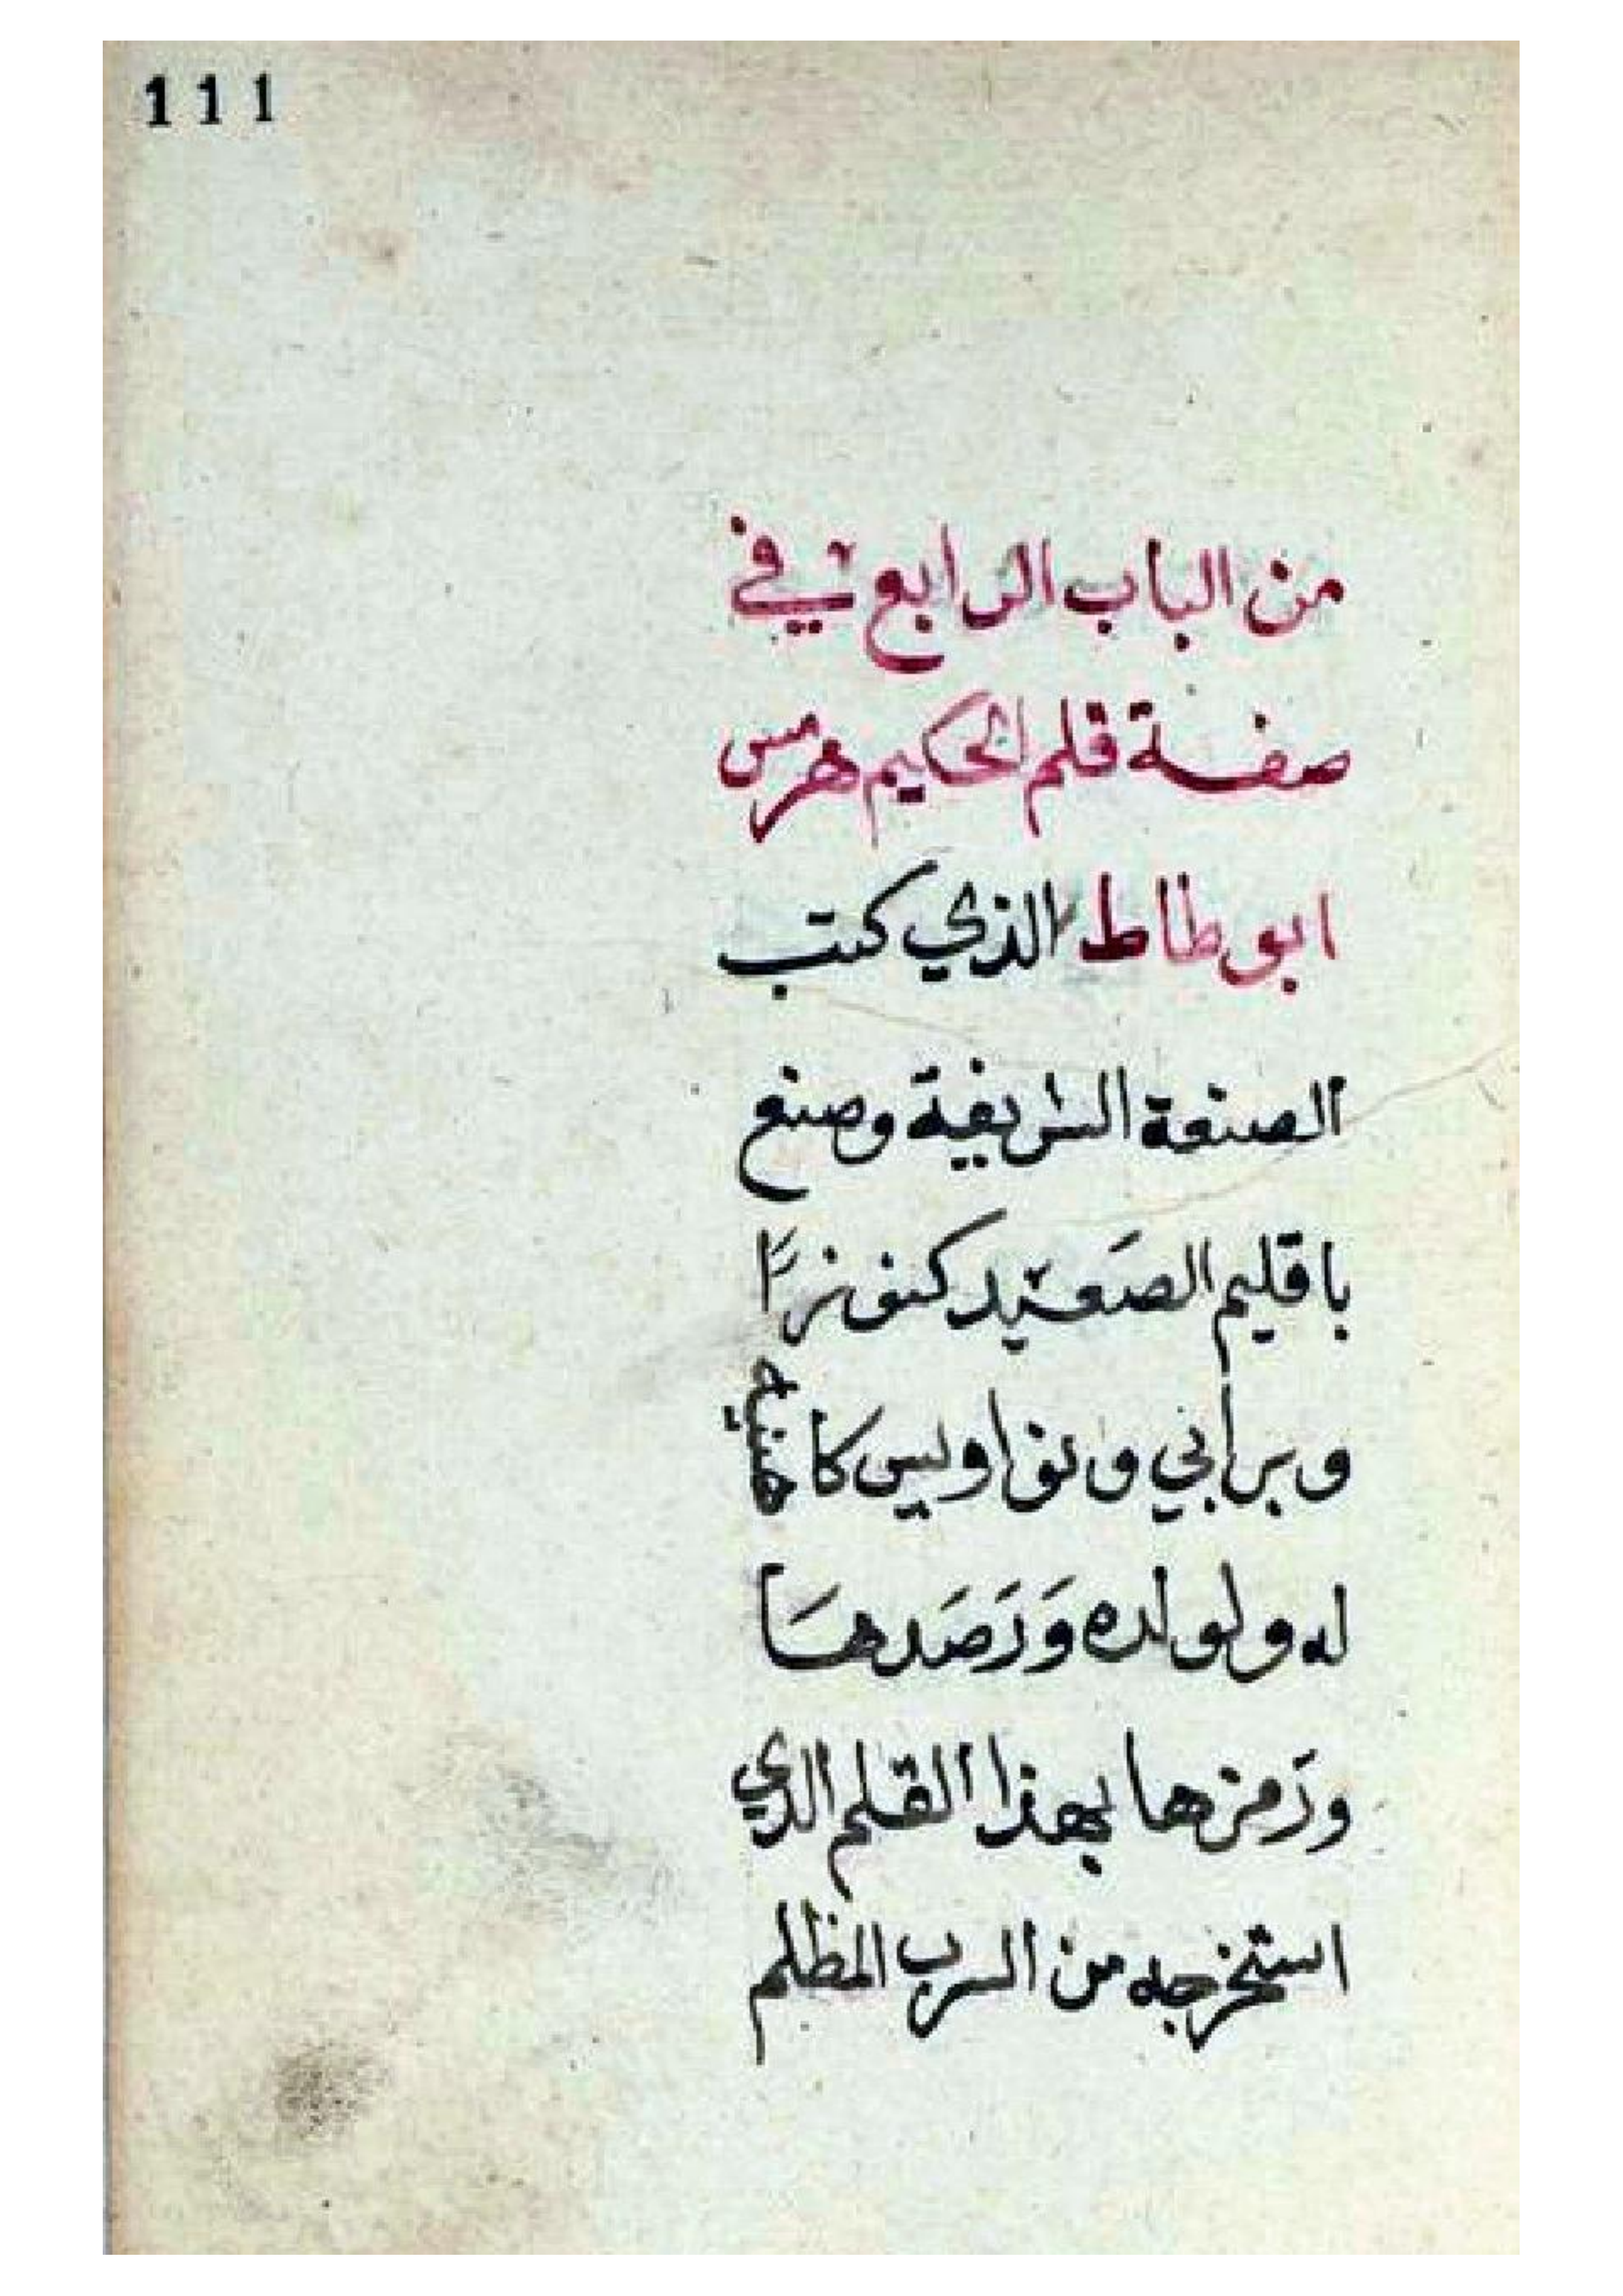 111
من الباب الرابع في
صفة قلم الحكيم هرمس
ابوطاط الذي كتب
الصنعة الشريفة وصنع
باقليم الصَعيد كنوزًا
وبرابي ونواويس كا
له ولولده وَرَصَدهَا
ورَمزها بهذا القلم الذي
استخرجه من السرب المظلم